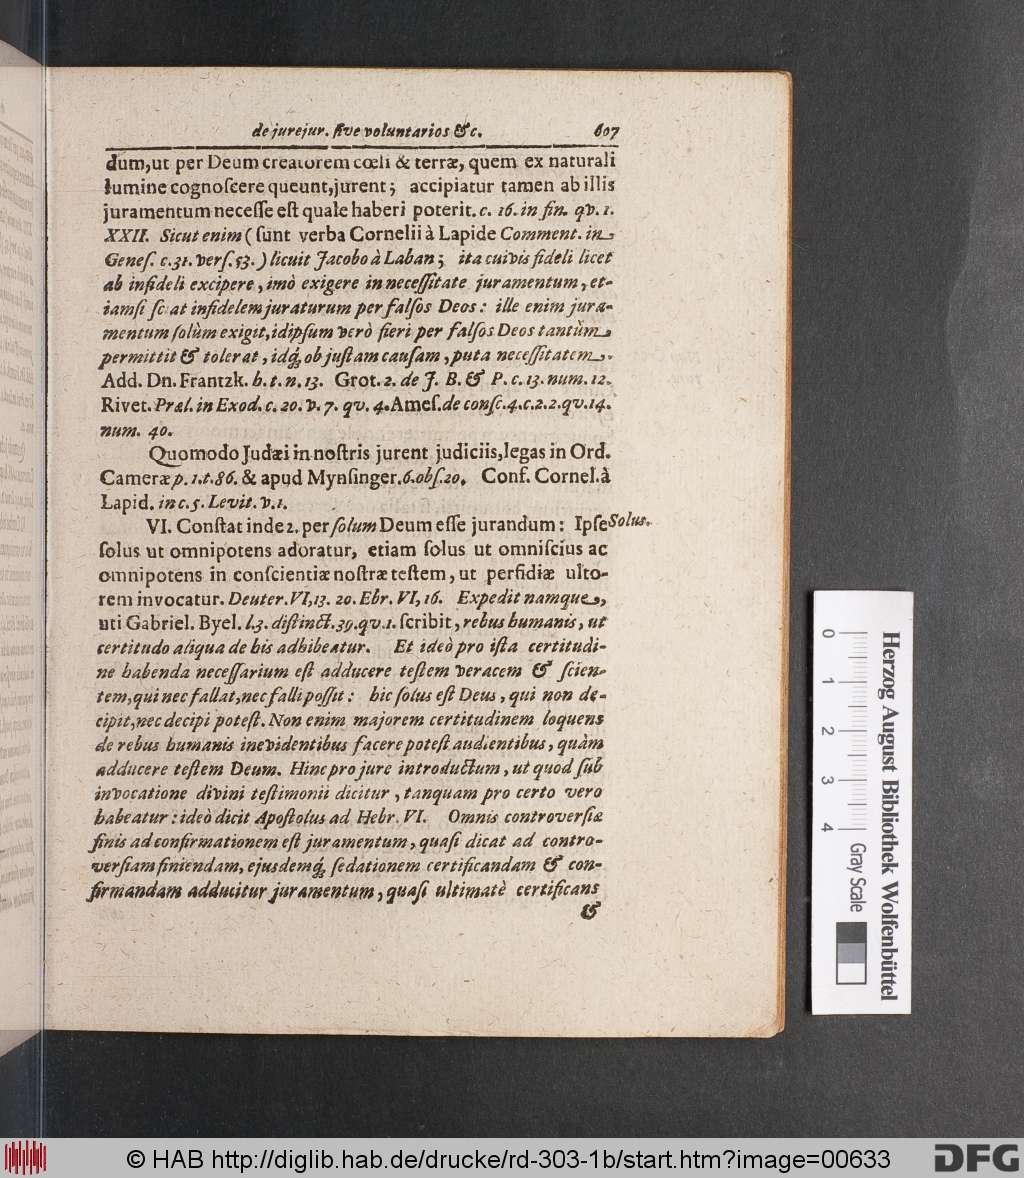 de jurejur. ſive voluntarios &c. 607
dum, ut per Deum creatorem cœli & terræ, quem ex naturali
lumine cognoſcere queunt, jurent; accipiatur tamen ab illis
juramentum neceſſe eſt quale haberi poterit. c. 16. in fin. qv. 1.
XXII. Sicut enim (ſunt verba Cornelii à Lapide Comment. in
Geneſ. c. 31. verſ. 53.) licuit Jacobo à Laban; ita cuivis fideli licet
ab infideli excipere, imò exigere in neceſſitate juramentum, et-
iamſi ſciat infidelem juraturum per falſos Deos: ille enim jura-
mentum ſolùm exigit, idipſum verò fieri per falſos Deos tantùm
permittit & tolerat, idq́; ob juſtam cauſam, puta neceſſitatem.
Add. Dn. Frantzk. h. t. n. 13. Grot. 2. de J. B. & P. c. 13. num. 12.
Rivet. Præl. in Exod. c. 20. v. 7. qv. 4. Ameſ. de conſc. 4. c. 2 2. qv. 14.
num. 40.
Quomodo Judæi in noſtris jurent judiciis, legas in Ord.
Cameræ p. 1. t. 86. & apud Mynſinger. 6. obſ. 20. Conf. Cornel. à
Lapid. in c. 5. Levit. v. 1.
VI. Conſtat inde 2. per ſolum Deum eſſe jurandum: Ipſe Solus.
ſolus ut omnipotens adoratur, etiam ſolus ut omniſcius ac
omnipotens in conſcientiæ noſtræ teſtem, ut perfidiæ ulto-
rem invocatur. Deuter. VI, 13. 20. Ebr. VI, 16. Expedit namque,
uti Gabriel. Byel. l. 3. diſtinct. 39. qv. 1. ſcribit, rebus humanis, ut
certitudo aliqua de his adhibeatur. Et ideò pro iſta certitudi-
ne habenda neceſſarium eſt adducere teſtem veracem & ſcien-
tem, qui nec fallat, nec falli poſſit: hic ſolus eſt Deus, qui non de-
cipit, nec decipi poteſt. Non enim majorem certitudinem loquens
de rebus humanis inevidentibus facere poteſt audientibus, quàm
adducere teſtem Deum. Hinc pro jure introductum, ut quod ſub
invocatione divini teſtimonii dicitur, tanquam pro certo vero
habeatur: ideò dicit Apoſtolus ad Hebr. VI. Omnis controverſiæ
finis ad confirmationem eſt juramentum, quaſi dicat ad contro-
verſiam finiendam, ejusdemq́; ſedationem certificandam & con-
firmandam adducitur juramentum, quaſi ultimatè certificans
&
Herzog August Bibliothek Wolfenbüttel
0 1 2 3 4 Gray Scale
© HAB http://diglib.hab.de/drucke/rd-303-1b/start.htm?image=00633
DFG